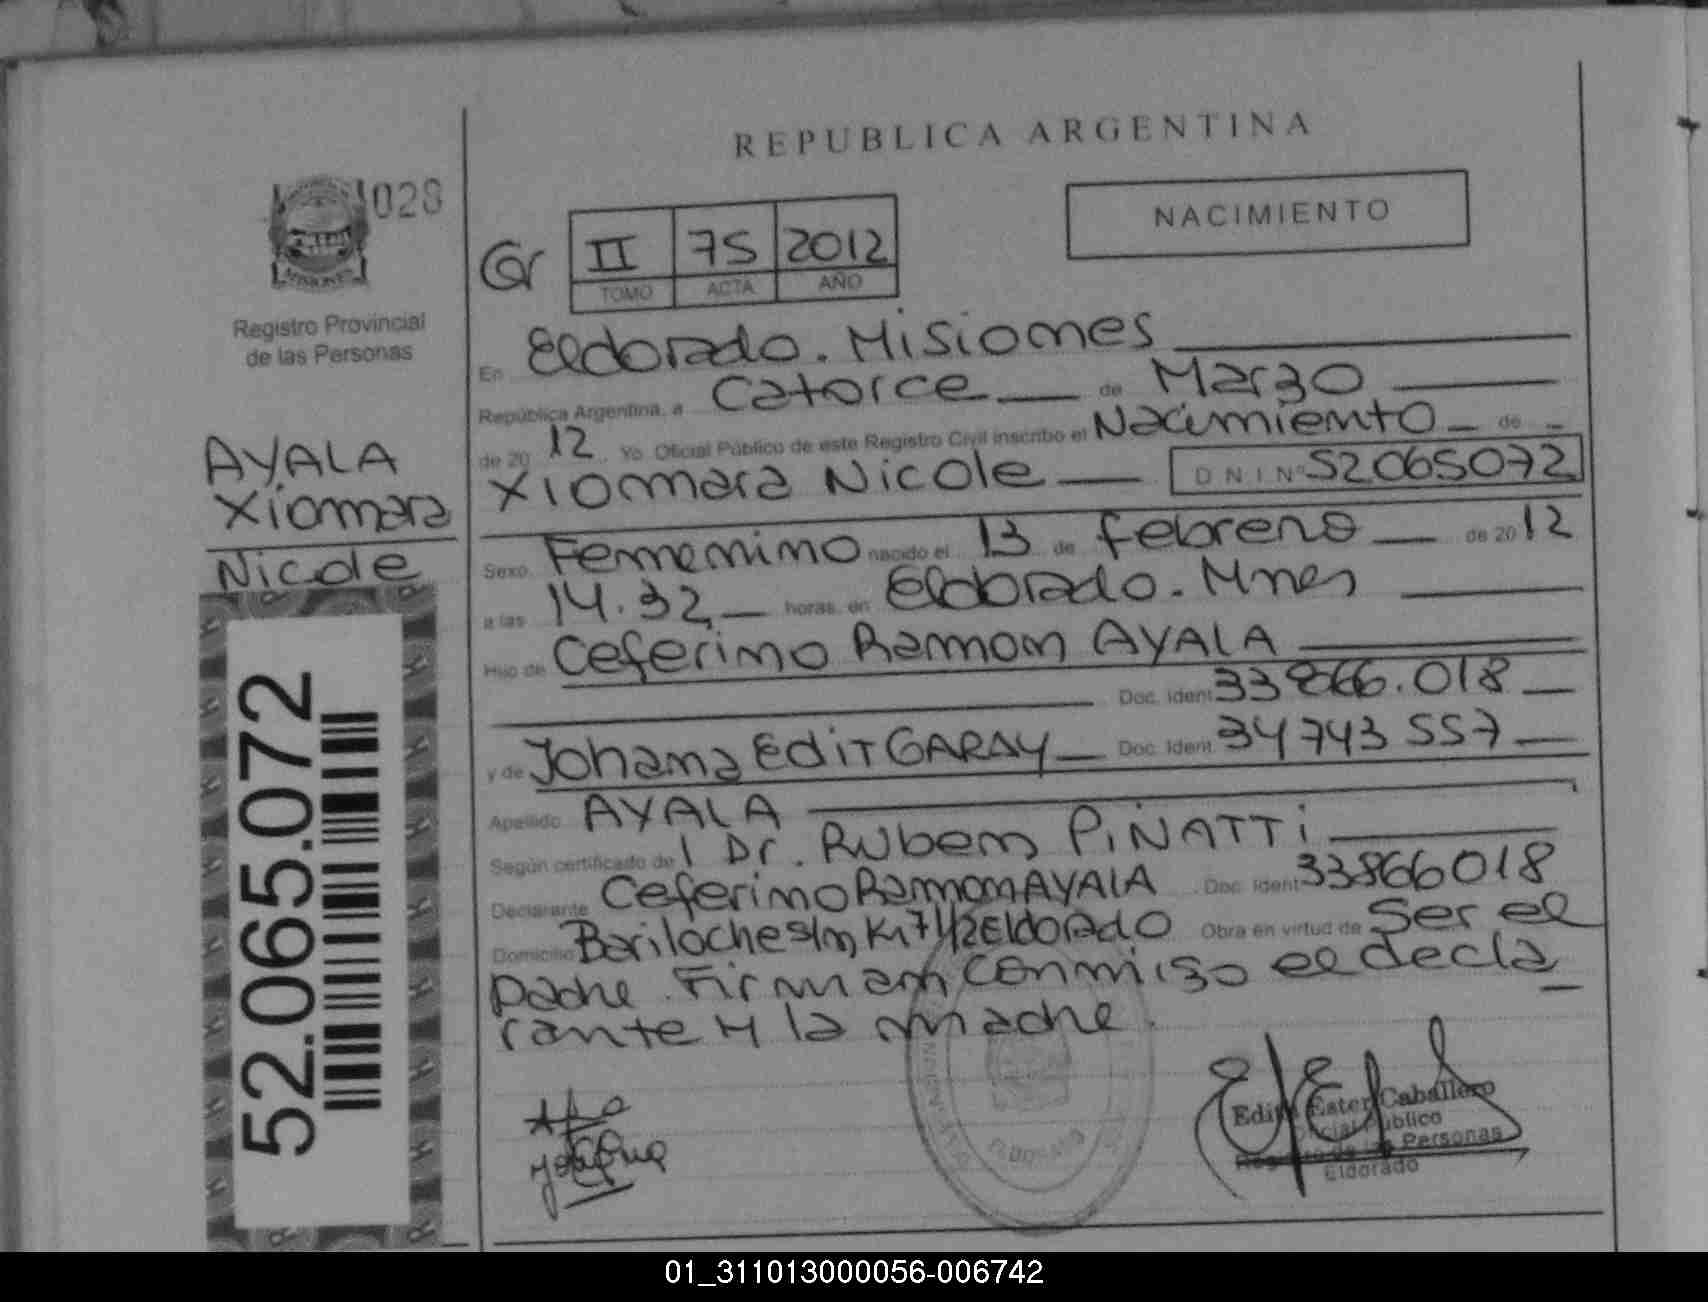 REPUBLICA ARGENTINA
028
NACIMIENTO
Gr II 75 2012
TOMO ACTA AÑO
MISIONES
Registro Provincial
de las Personas
AYALA
Xiomara
Nicole
52.065.072
En Eldorado. Misiones
República Argentina, a Catorce de Marzo
de 20 12 Yo Oficial Público de este Registro Civil inscribo el Nacimiento de
Xiomara Nicole DNI Nº 52065072
Sexo Femenino nacido el 13 de febrero de 2012
a las 14.32 horas, en Eldorado. Mnes
Hijo de Ceferino Ramon AYALA
Doc. Ident 33866.018
y de Johana Edit GARAY Doc. Ident. 34743557
Apellido AYALA
Según certificado de l Dr. Ruben PiÑATTi
Declarante Ceferino Ramon AYALA Doc. Ident 33866018
Domicilio Bariloche s/n Km 7 1/2 Eldorado Obra en virtud de Ser el
padre. Firman conmigo el decla
rante y la madre.
ELDORADO
Edith Ester Caballero
Oficial Público
Registro de las Personas
Eldorado
01_311013000056-006742